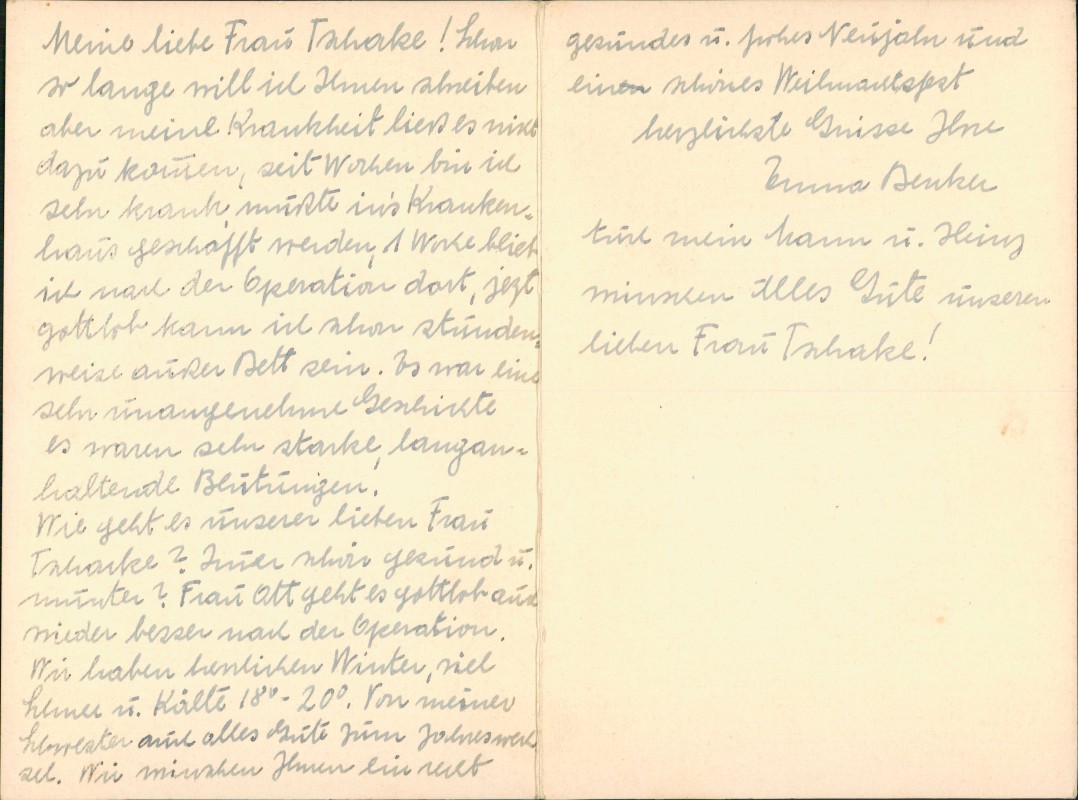 Meine liebe Frau Tschake! Schon
so lange will ich Ihnen schreiben
aber meine Krankheit ließ es nicht
dazu kom̅en, seit Wochen bin ich
sehr krank, mußte in's Kranken-
haus geschafft werden, 1 Woche blieb
ich nach der Operation dort, jezt
gottlob kann ich schon stunden-
weise außer Bett sein. Es war eine
sehr unangenehme Geschichte
es waren sehr starke, langan-
haltende Blutungen.
Wie geht es unserer lieben Frau
Tschacke? Im̅er schön gesund u.
munter? Frau Ott geht es gottlob auch
wieder besser nach der Operation.
Wir haben herrlichen Winter, viel
Schnee u. Kälte 18° - 20°. Von meiner
Schwester auch alles Gute zum Jahreswech
sel. Wir wünschen Ihnen ein recht
gesundes u. frohes Neujahr und
ein schönes Weihnachtsfest
herzlichste Grüsse Ihre
Emma Benker
Auch mein Mann u. Heinz
wünschen Alles Gute unseren
lieben Frau Tschake!